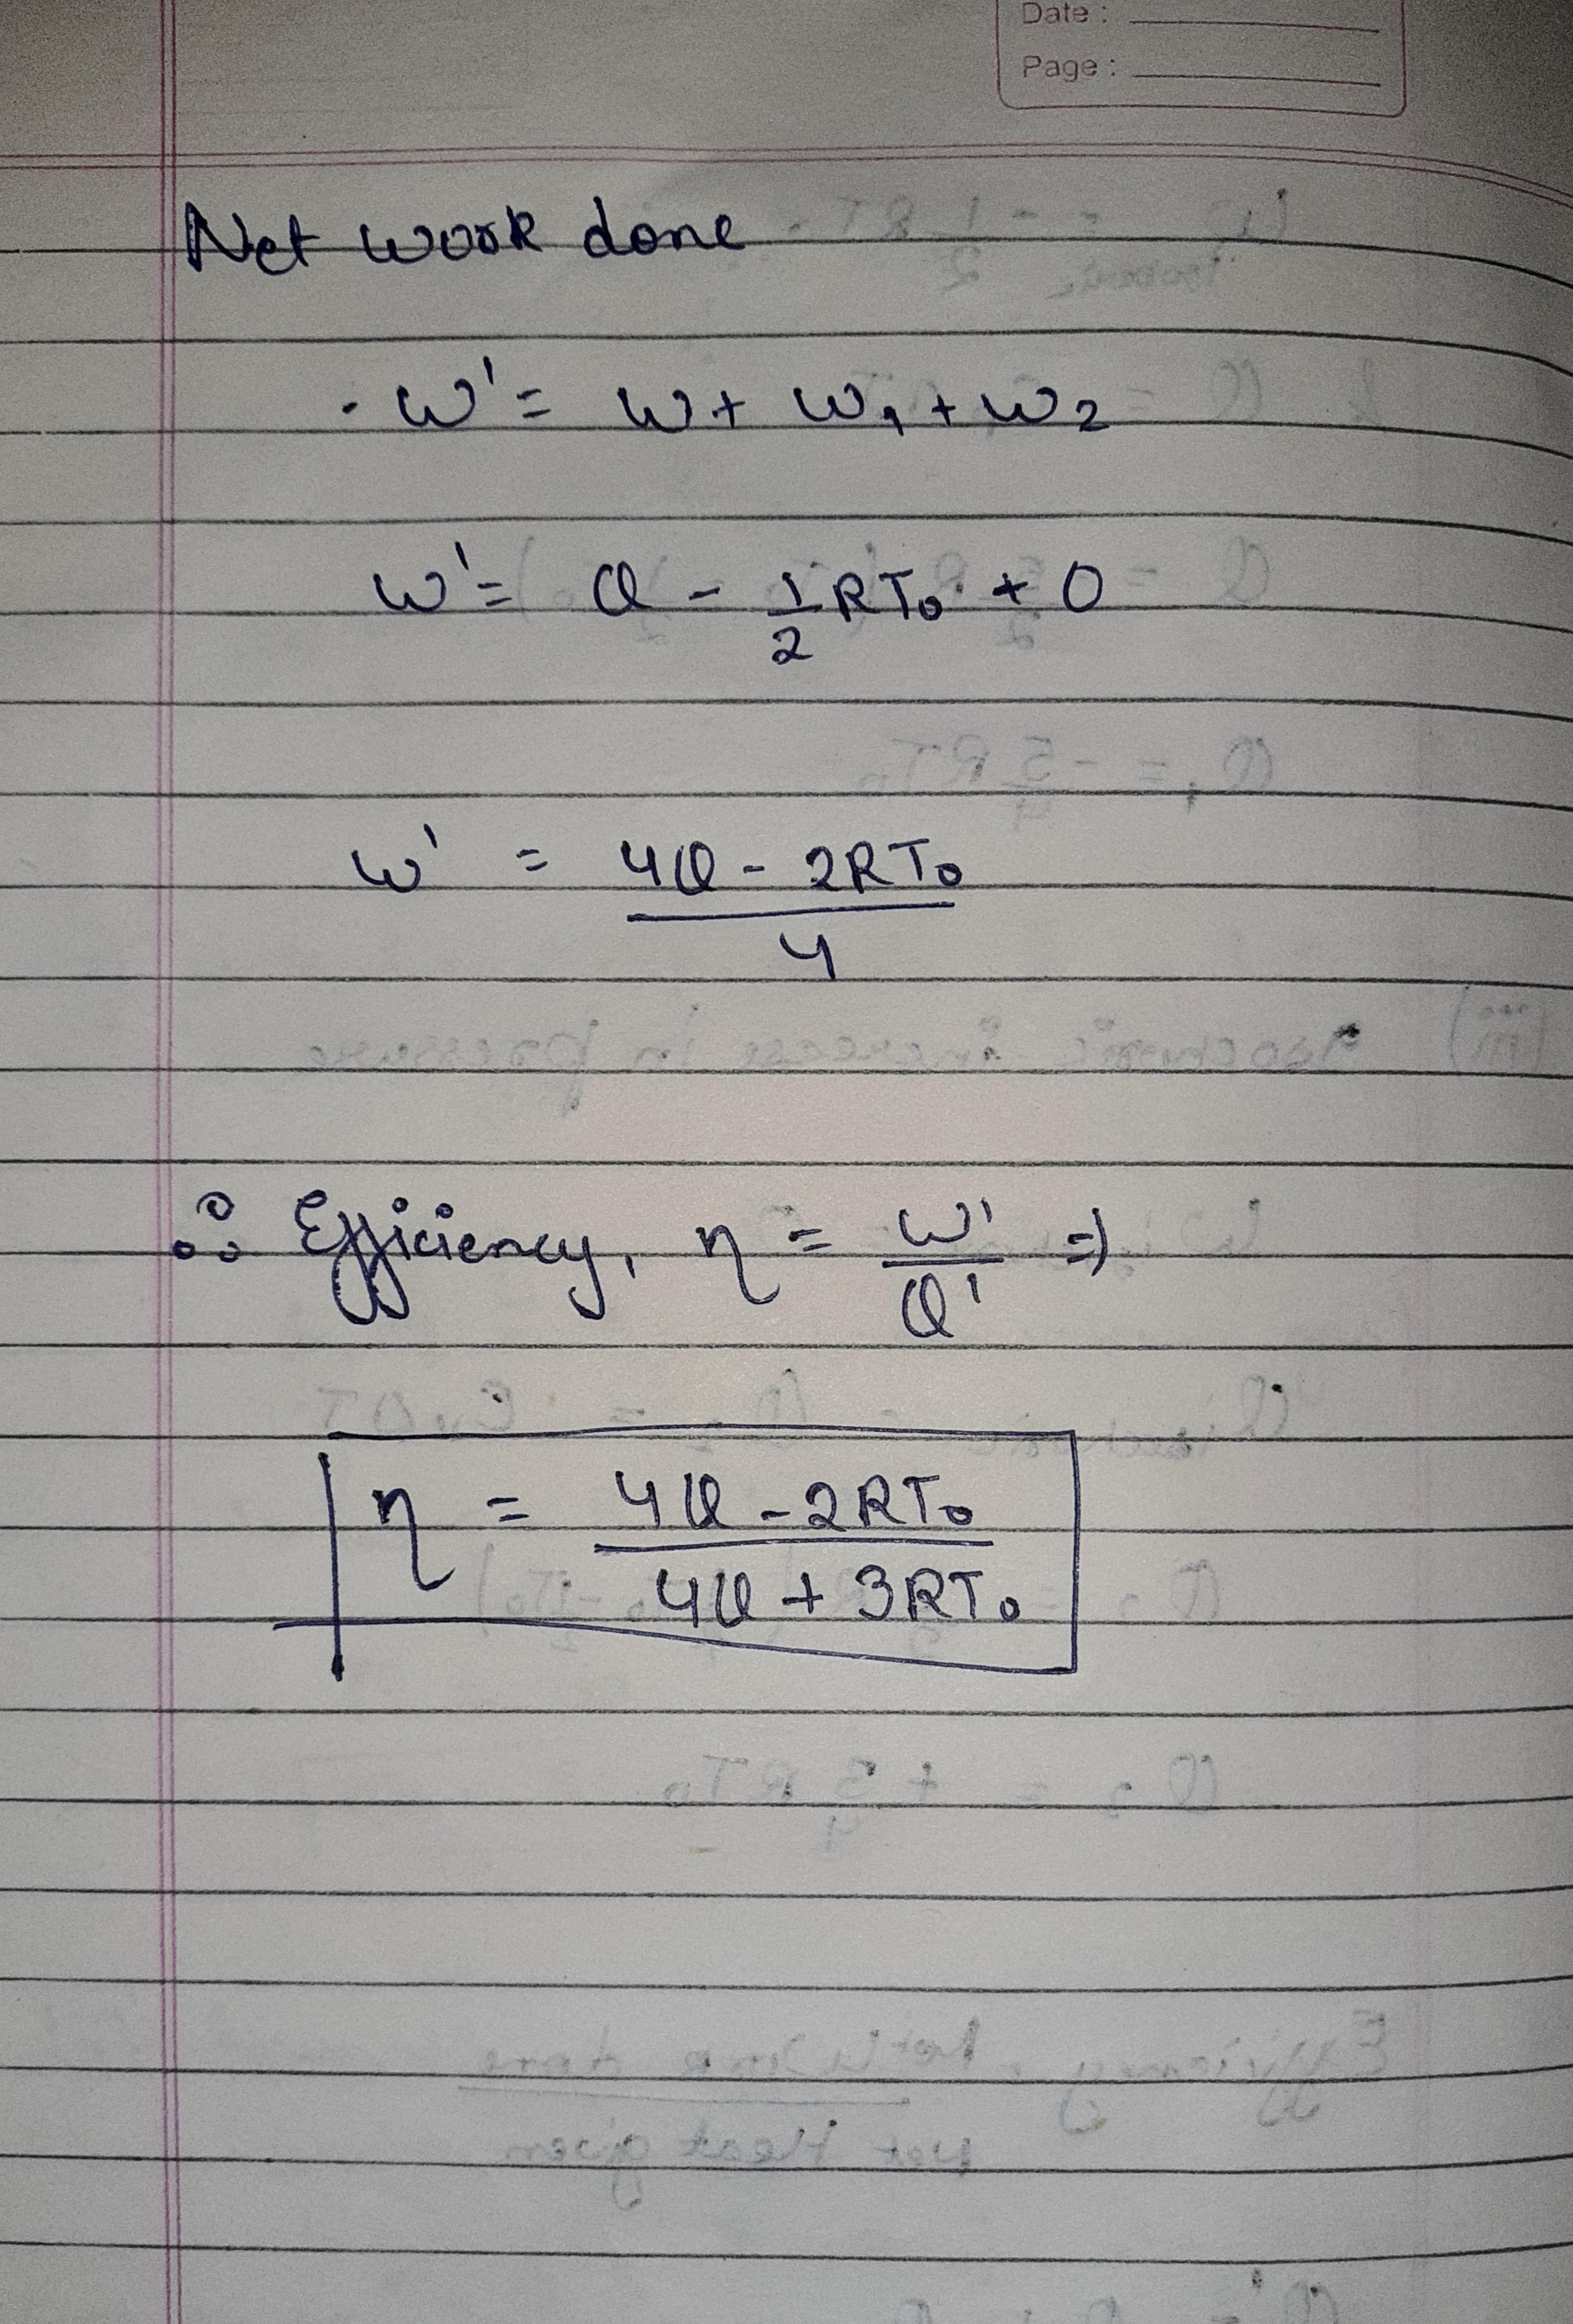 Date :
Page :
Net work done
W' = W + W₁ + W₂
W' = Q - 1/2 RT₀ + 0
W' = 4Q - 2RT₀ / 4
∴ Efficiency, η = W'/Q' ⇒
η = 4Q - 2RT₀ / 4Q + 3RT₀